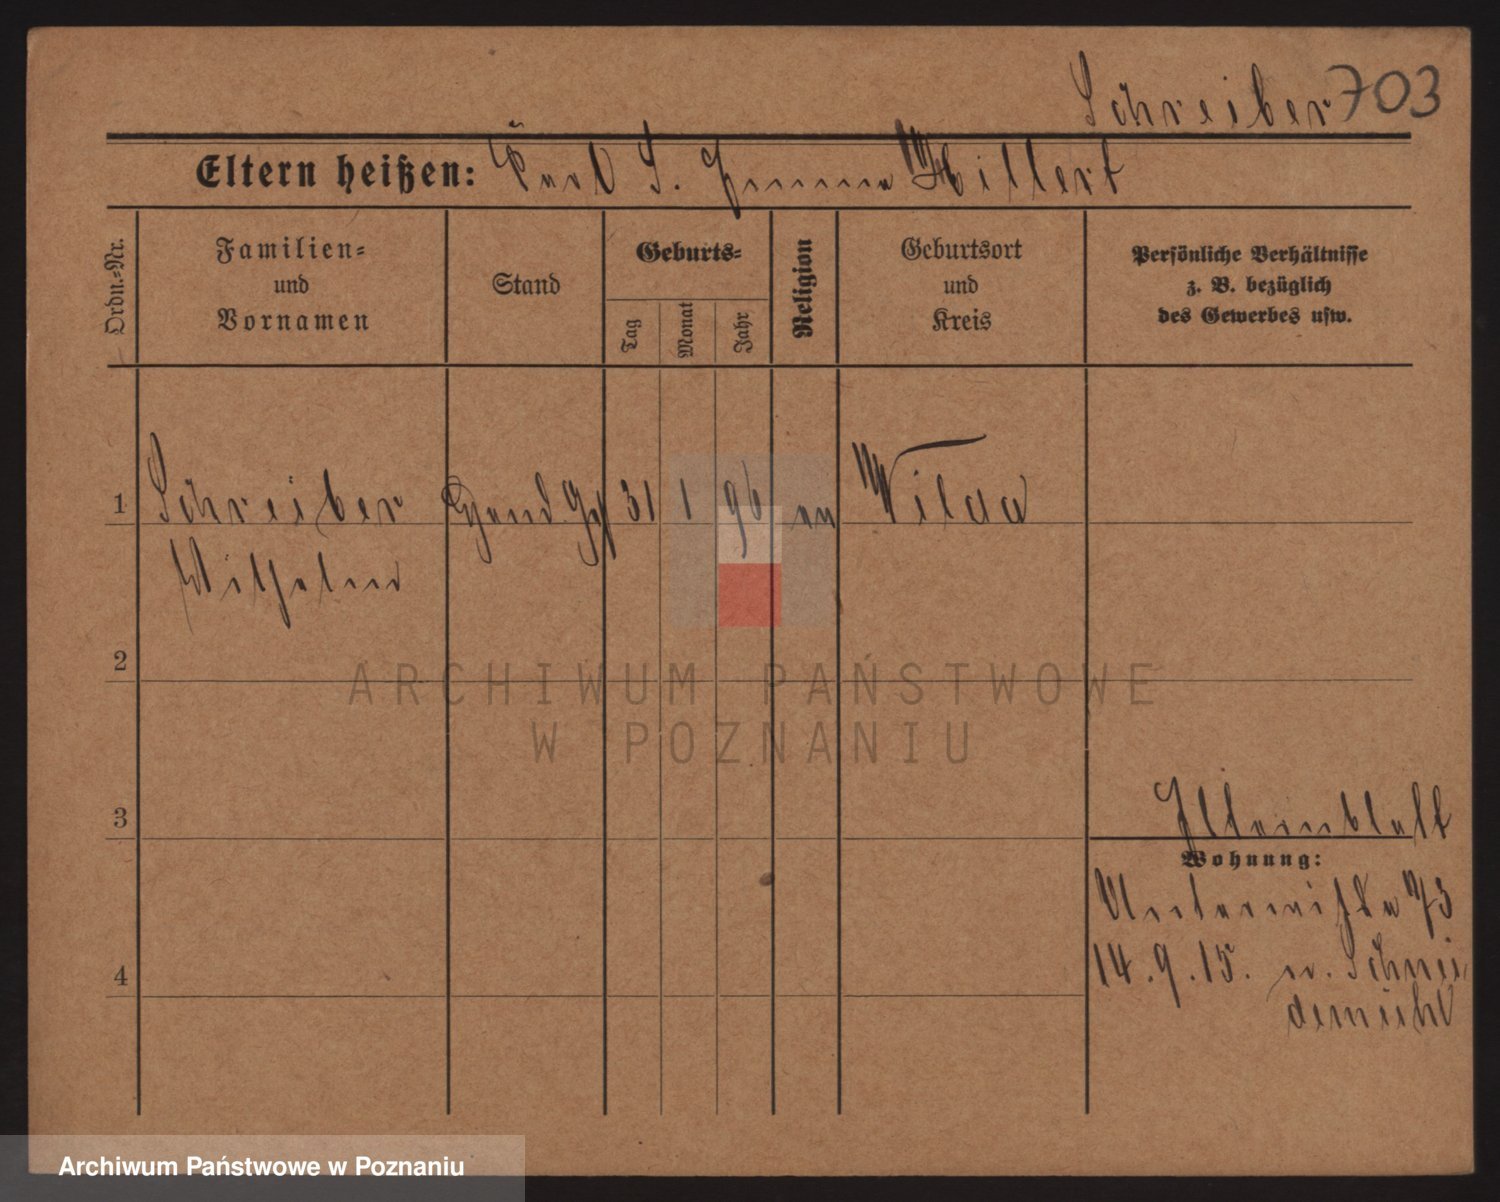 Schreiber 703
Eltern heißen: Karl S. Emma Hillert
Ordn.-Nr.
Familien-
und
Vornamen
Stand
Geburts-
Tag
Monat
Jahr
Religion
Geburtsort
und
Kreis
Persönliche Verhältnisse
z. B. bezüglich
des Gewerbes usw.
1 Schreiber 31 1 96 ev Wilda
Wilhelm
2
ARCHIWUM PAŃSTWOWE
W POZNANIU
3
Elternblatt
Wohnung:
Unterwilda 73
4
14.9.15. n. Schnei
demühl
Archiwum Państwowe w Poznaniu